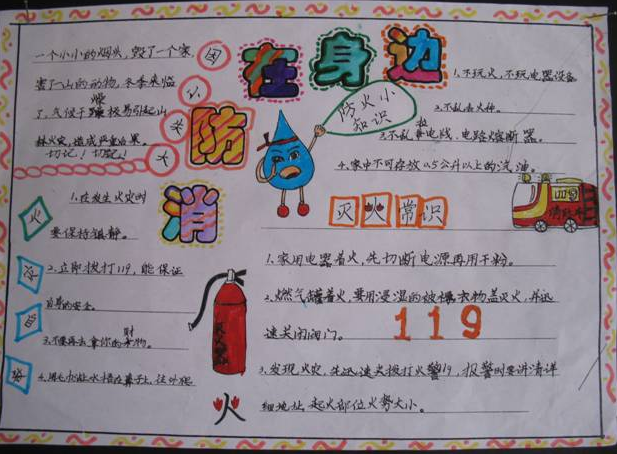 在身边
防
消
一个小小的烟头，毁了一个家，
害了一山的动物，冬季来临
了，气候干燥极易引起山
林火灾，造成严重后果。
切记！切记！
防火小
知识
1.不玩火，不玩电器设备
2.不乱丢火种。
3.不乱电线、电路熔断器。
4.家中不可存放0.5公升以上的汽油。
火
1.在发生火灾时
要保持镇静。
2.立即拨打119，能保证
自身的安全。
3.不要再去拿你的财物。
灭火常识
1.家用电器着火，先切断电源再用干粉。
2.燃气罐着火，要用浸湿的被褥衣物盖灭火，并迅
速关闭阀门。
119
3.发现火灾，先迅速拨打火警119，报警时要讲清详
细地址、起火部位火势大小。
火